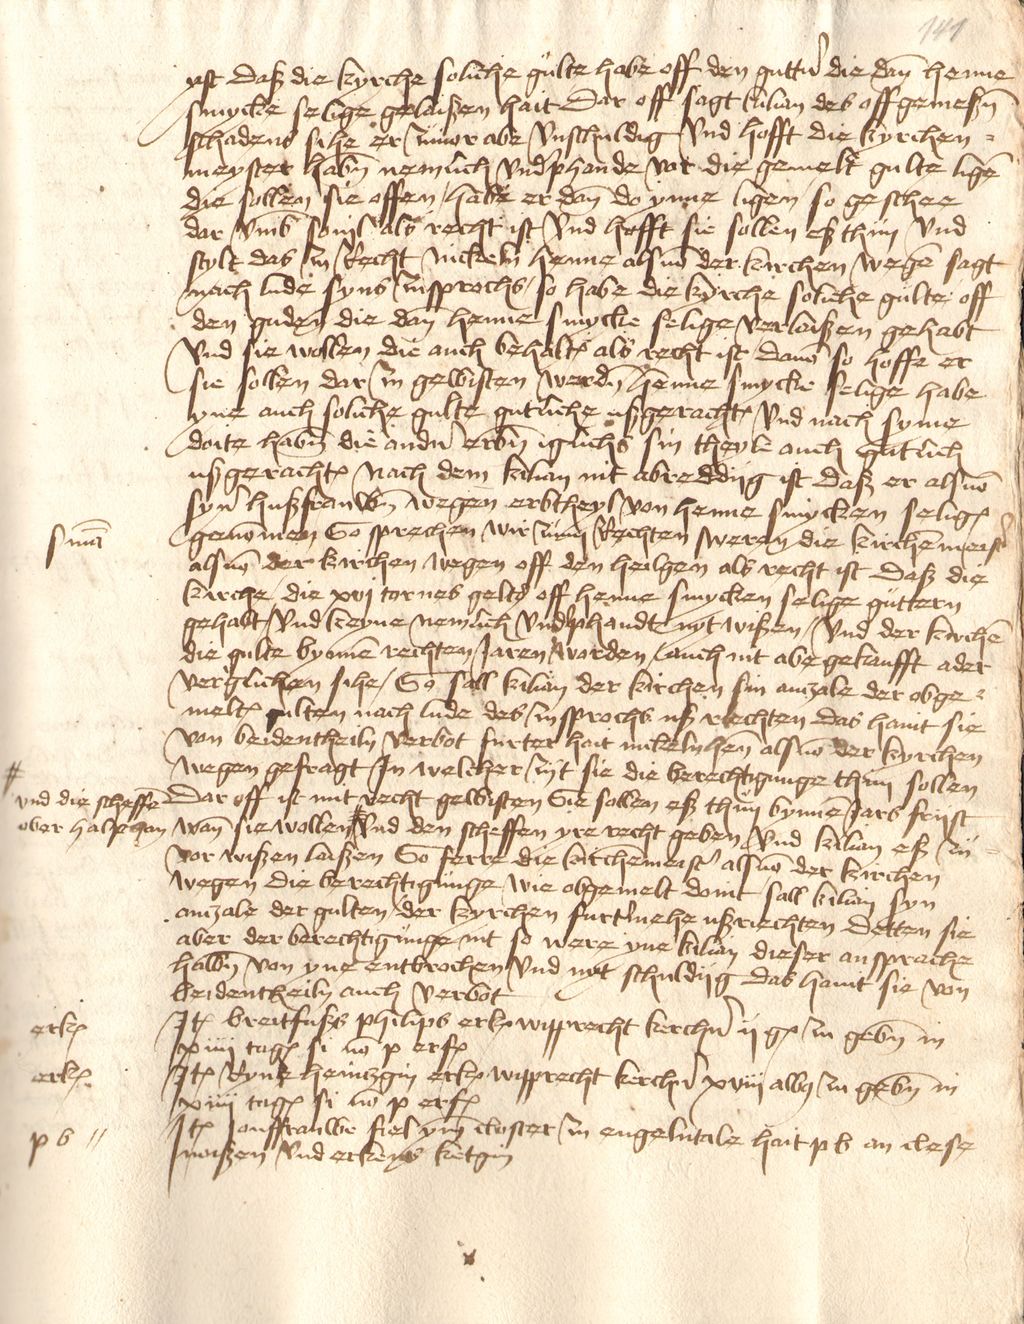 141
ist daß die kyrche soliche gulte habe off den guttern die dan henne
smycke selige gelaißen hait Dar off sagt kilian des offgemeßen
schadens sihe er zumor abe unschuldig und hofft die kyrchen-
meyster haben nemlich underphande vor die gemelt gulte ligen
die sollen sie offen / habe er dan do ynne ligen so geschee
dar umb sovil als recht ist Und hofft sie sollen eß thun und
stylt das zu Recht nickeln henne als von der kirchen wegen sagt
nach lude syns zusprochs / so habe die kyrche soliche gulte off
den guden die dan henne smycke selige verlaißen gehabt
Und sie wollen die auch behalten als recht ist dan so hoffe er
sie sollen dar in gewisten werden henne smycke selige habe
yne auch soliche gulte gutliche ußgeracht Und nach syme
doite haben die andern erben iglichs sin theyle auch gutlich
ußgeracht Nach dem kilian nit abreddig ist daß er als von
syner hußfrauwen wegen erbtheyl von henne smycken selig
genommen So sprechen wir zum Rechten sweren die kirchenmeister
als von der kirchen wegen off den heilgen als recht ist daß die
kirche die xvj tornes gelts off henne smycken selige guttern
gehabt / Und keyne nemlich underphandt nyt wißen / Und der kirchen
die gulte bynnen rechten Jaren worden / auch nit abe gekaufft ader
verglichen sihe / So sall kilian der kirchen sin anzale der obge-
melten gulten nach lude des zusprochs uß riechten das hant sie
von beidentheiln verbot furter hait nickelnhen als von der kyrchen
wegen gefragt In welcher zijt sie die berechtigunge thun sollen
Dar off ist mit recht gewisten Sie sollen eß thun bynnen Jars friist
wan sie wollen # Und den scheffen yre recht geben Und kilian eß zu-
vor wißen laißen So ferre die kirchenmeister als von der kirchen
wegen die berechtigunge wie obgemelt doint sall kilian syn
anzale der gulten der kyrchen furter mehe ußriechten Detten sie
aber der berechtigunge nit so were yne kilian dieser ansprache
halben von yne entbrochen und nyt schuldig das hant sie von
beidentheiln auch verbot
It breitfußs philips erk wipprecht kercher ij g zu geben in
xiiij tag si non p erf
It Ryne heintzgin erk wipprecht kercher xviij alb zu geben in
xiiij tag si non p erf
It Jonffrauwe fiel ym closter zu engelntale hait p b an clese
und erkens
# und die scheffen
ober halp
erk
erk
p b